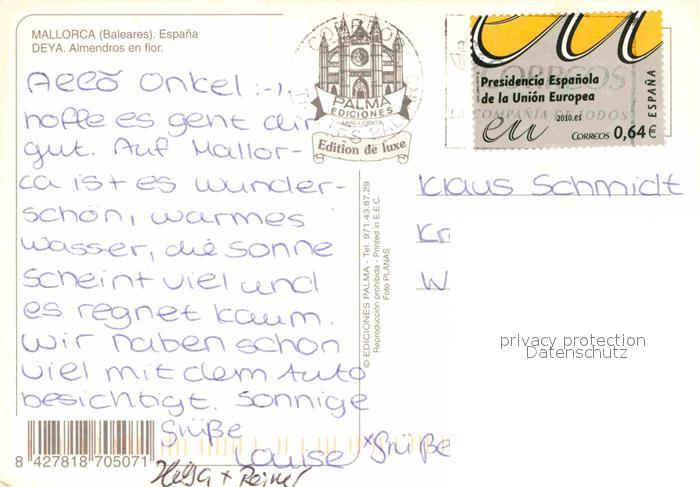 MALLORCA (Baleares). España
DEYA. Almendros en flor.
Alló Onkel :-),
hoffe es geht dir
gut. Auf Mallor-
ca ist es wunder-
schön, warmes
wasser, die sonne
scheint viel und
es regnet kaum.
wir haben schon
viel mit dem Auto
besichtigt. Sonnige
Grüße
Louise
xGrüße
Helga + Reiner
8 427818 705071
PALMA
EDICIONES
MALLORCA
Edition de luxe
© EDICIONES PALMA - Tel. 971.43.87.29
Reproducción prohibida - Printed in E.E.C.
Foto PLANAS
CORREOS
LA COMPAÑÍA TODOS
Presidencia Española
de la Unión Europea
eu 2010.es
CORREOS 0,64€
ESPAÑA
Klaus Schmidt
Kr
W
privacy protection
Datenschutz